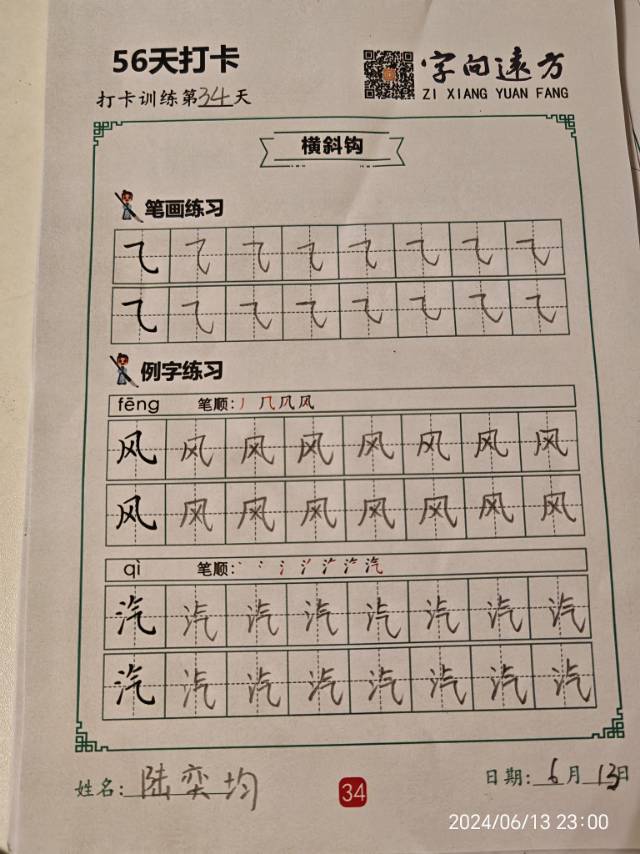 56天打卡
字向远方
打卡训练第34天
ZI XIANG YUAN FANG
横斜钩
笔画练习
⺄ ⺄ ⺄ ⺄ ⺄ ⺄ ⺄ ⺄
⺄ ⺄ ⺄ ⺄ ⺄ ⺄ ⺄ ⺄
例字练习
fēng 笔顺: 丿 几 凤 风
风 风 风 风 风 风 风 风
风 风 风 风 风 风 风 风
qì 笔顺:
汽 汽 汽 汽 汽 汽 汽 汽
汽 汽 汽 汽 汽 汽 汽 汽
姓名: 陆奕均
日期: 6月13日
34
2024/06/13 23:00